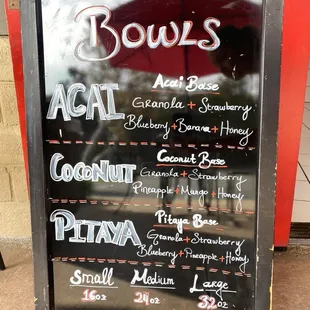 Bowls
Acai Base
ACAI
Granola + Strawberry
Blueberry + Banana + Honey
Coconut Base
Coconut
Granola + Strawberry
Pineapple + Mango + Honey
Pitaya Base
Pitaya
Granola + Strawberry
Blueberry + Pineapple + Honey
Small Medium Large
16oz 24oz 32oz